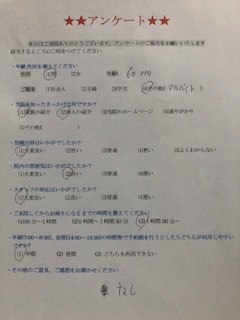 ★★アンケート★★
本日はご来院ありがとうございます。アンケートのご協力をお願いいたします
該当するところに○印をつけてください
・年齢、性別を教えてください
性別 (1)男 (2)女 年齢( 60代
ご職業 (1)社会人 (2)主婦 (3)学生 (4)その他( アルバイト )
・当院を知ったきっかけは何ですか?
(1)家族の紹介 (2)知人の紹介 (3)当院のホームページ (4)通りがかり
(5)その他(
・治療内容はいかがでしたか?
(1)大変良い (2)良い (3)普通 (4)悪い (5)よくわからない
・院内の雰囲気はいかがでしたか?
(1)大変良い (2)良い (3)普通 (4)悪い
・スタッフの対応はいかがでしたか?
(1)大変良い (2)良い (3)普通 (4)悪い
・ご来院してからお帰りになるまでの時間を教えてください
(1)30分~1時間 (2)1時間~1時間30分 (3)1時間30分~
(1)早朝 (2)昼間 (3)どちらも利用できない
・その他のご意見、ご感想をお聞かせください
なし